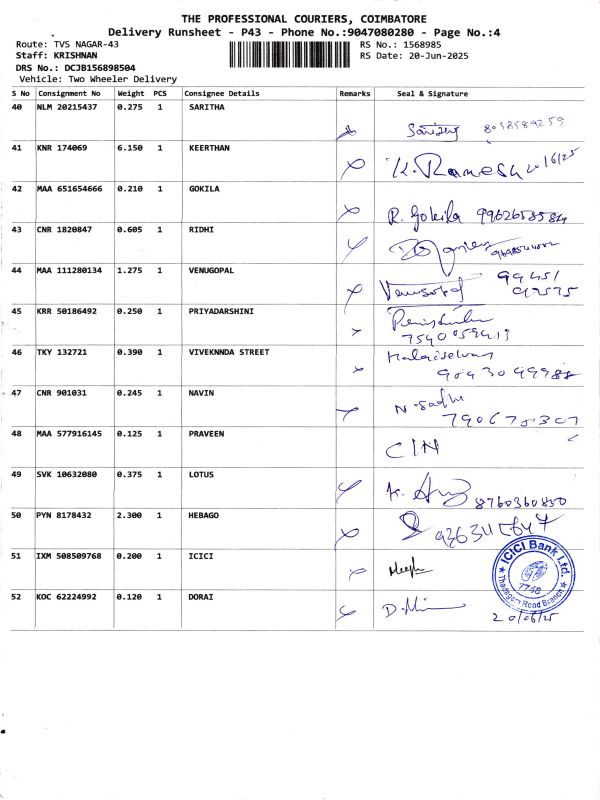 THE PROFESSIONAL COURIERS, COIMBATORE
Delivery Runsheet - P43 - Phone No.:9047080280 - Page No.:4
Route: TVS NAGAR-43 RS No.: 1568985
Staff: KRISHNAN RS Date: 20-Jun-2025
DRS No.: DCJB156898504
Vehicle: Two Wheeler Delivery
S No Consignment No Weight PCS Consignee Details Remarks Seal & Signature
40 NLM 20215437 0.275 1 SARITHA
41 KNR 174069 6.150 1 KEERTHAN
K. Ramesh 20/6/25
42 MAA 651654666 0.210 1 GOKILA
R. Gokila 9962658584
43 CNR 1820847 0.605 1 RIDHI
44 MAA 111280134 1.275 1 VENUGOPAL
Venugopal 99451
97575
45 KRR 50186492 0.250 1 PRIYADARSHINI
7540059413
46 TKY 132721 0.390 1 VIVEKNNDA STREET
Kalaiselvan
9043049988
47 CNR 901031 0.245 1 NAVIN
N. Sadhi
790675307
48 MAA 577916145 0.125 1 PRAVEEN
C/N
49 SVK 10632080 0.375 1 LOTUS
K. 8760360850
50 PYN 8178432 2.300 1 HEBAGO
51 IXM 508509768 0.200 1 ICICI
ICICI Bank Ltd.
Thadagam Road Branch
7740
52 KOC 62224992 0.120 1 DORAI
20/06/25